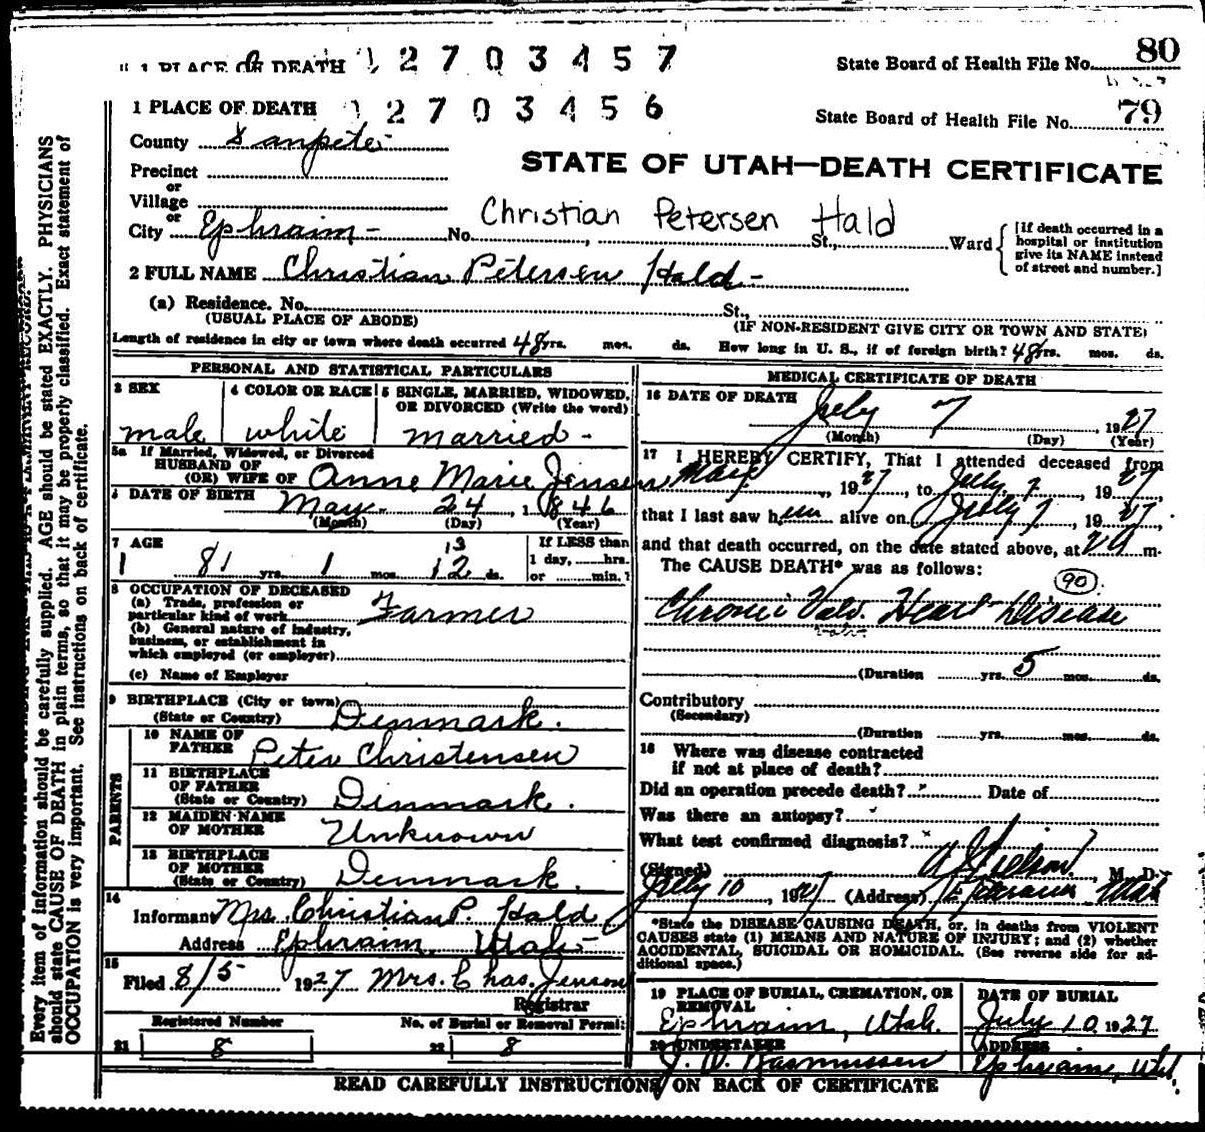 1 PLACE OF DEATH 1 2 7 0 3 4 5 7 State Board of Health File No. 80
1 PLACE OF DEATH 1 2 7 0 3 4 5 6 State Board of Health File No. 79
County Sanpete
STATE OF UTAH—DEATH CERTIFICATE
Precinct
or
Village
or
Christian Petersen Hald
City Ephraim No. , St., Ward
[If death occurred in a
hospital or institution
give its NAME instead
of street and number.]
2 FULL NAME Christian Petersen Hald
(a) Residence. No. St.,
(USUAL PLACE OF ABODE) (IF NON-RESIDENT GIVE CITY OR TOWN AND STATE)
Length of residence in city or town where death occurred 48 yrs. mos. ds. How long in U. S., if of foreign birth? 48 yrs. mos. ds.
PERSONAL AND STATISTICAL PARTICULARS
3 SEX
male
4 COLOR OR RACE
white
5 SINGLE, MARRIED, WIDOWED,
OR DIVORCED (Write the word)
married
5a If Married, Widowed, or Divorced
HUSBAND OF
(OR) WIFE OF Anne Marie Jensen
6 DATE OF BIRTH May 24, 1846
(Month) (Day) (Year)
7 AGE
13
81 yrs. 1 mos. 12 ds.
If LESS than
1 day, hrs.
or min.?
8 OCCUPATION OF DECEASED
(a) Trade, profession or
particular kind of work Farmer
(b) General nature of industry,
business, or establishment in
which employed (or employer)
(c) Name of Employer
9 BIRTHPLACE (City or town)
(State or Country) Denmark.
PARENTS
10 NAME OF
FATHER Peter Christensen
11 BIRTHPLACE
OF FATHER
(State or Country) Denmark.
12 MAIDEN NAME
OF MOTHER Unknown
13 BIRTHPLACE
OF MOTHER
(State or Country) Denmark.
14
Informant Mrs. Christian P. Hald
Address Ephraim Utah
15
Filed 8/5 1927 Mrs. Chas. Jenson
Registrar
Registered Number No. of Burial or Removal Permit
21 8 22 8
MEDICAL CERTIFICATE OF DEATH
16 DATE OF DEATH July 7, 1927
(Month) (Day) (Year)
17 I HEREBY CERTIFY, That I attended deceased from
May, 1927, to July 7, 1927,
that I last saw him alive on July 7, 1927,
and that death occurred, on the date stated above, at m.
The CAUSE DEATH* was as follows:
(90)
Chronic Valv. Heart Disease
(Duration yrs. 5 mos. ds.
Contributory
(Secondary)
(Duration yrs. mos. ds.
18 Where was disease contracted
if not at place of death?
Did an operation precede death? Date of
Was there an autopsy?
What test confirmed diagnosis?
(Signed) M. D.
July 10, 1927 (Address) Ephraim Utah
*State the DISEASE CAUSING DEATH, or, in deaths from VIOLENT
CAUSES state (1) MEANS AND NATURE OF INJURY; and (2) whether
ACCIDENTAL, SUICIDAL OR HOMICIDAL. (See reverse side for ad-
ditional space.)
19 PLACE OF BURIAL, CREMATION, OR
REMOVAL
Ephraim, Utah.
DATE OF BURIAL
July 10, 1927
20 UNDERTAKER
Rasmussen
ADDRESS
Ephraim, Utah.
READ CAREFULLY INSTRUCTIONS ON BACK OF CERTIFICATE
Every item of information should be carefully supplied. AGE should be stated EXACTLY. PHYSICIANS
should state CAUSE OF DEATH in plain terms, so that it may be properly classified. Exact statement of
OCCUPATION is very important. See instructions on back of certificate.